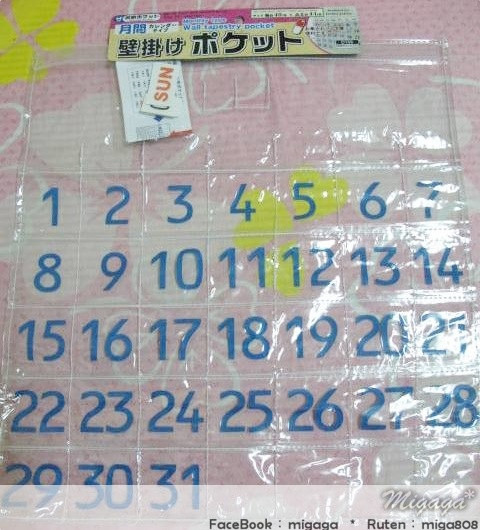 月間
カレンダー
タイプ
Monthly type
Wall tapestry pocket
壁掛け ポケット
SUN
1 2 3 4 5 6 7
8 9 10 11 12 13 14
15 16 17 18 19 20 21
22 23 24 25 26 27 28
29 30 31
Migaga*
FaceBook : migaga * Ruten : miga808